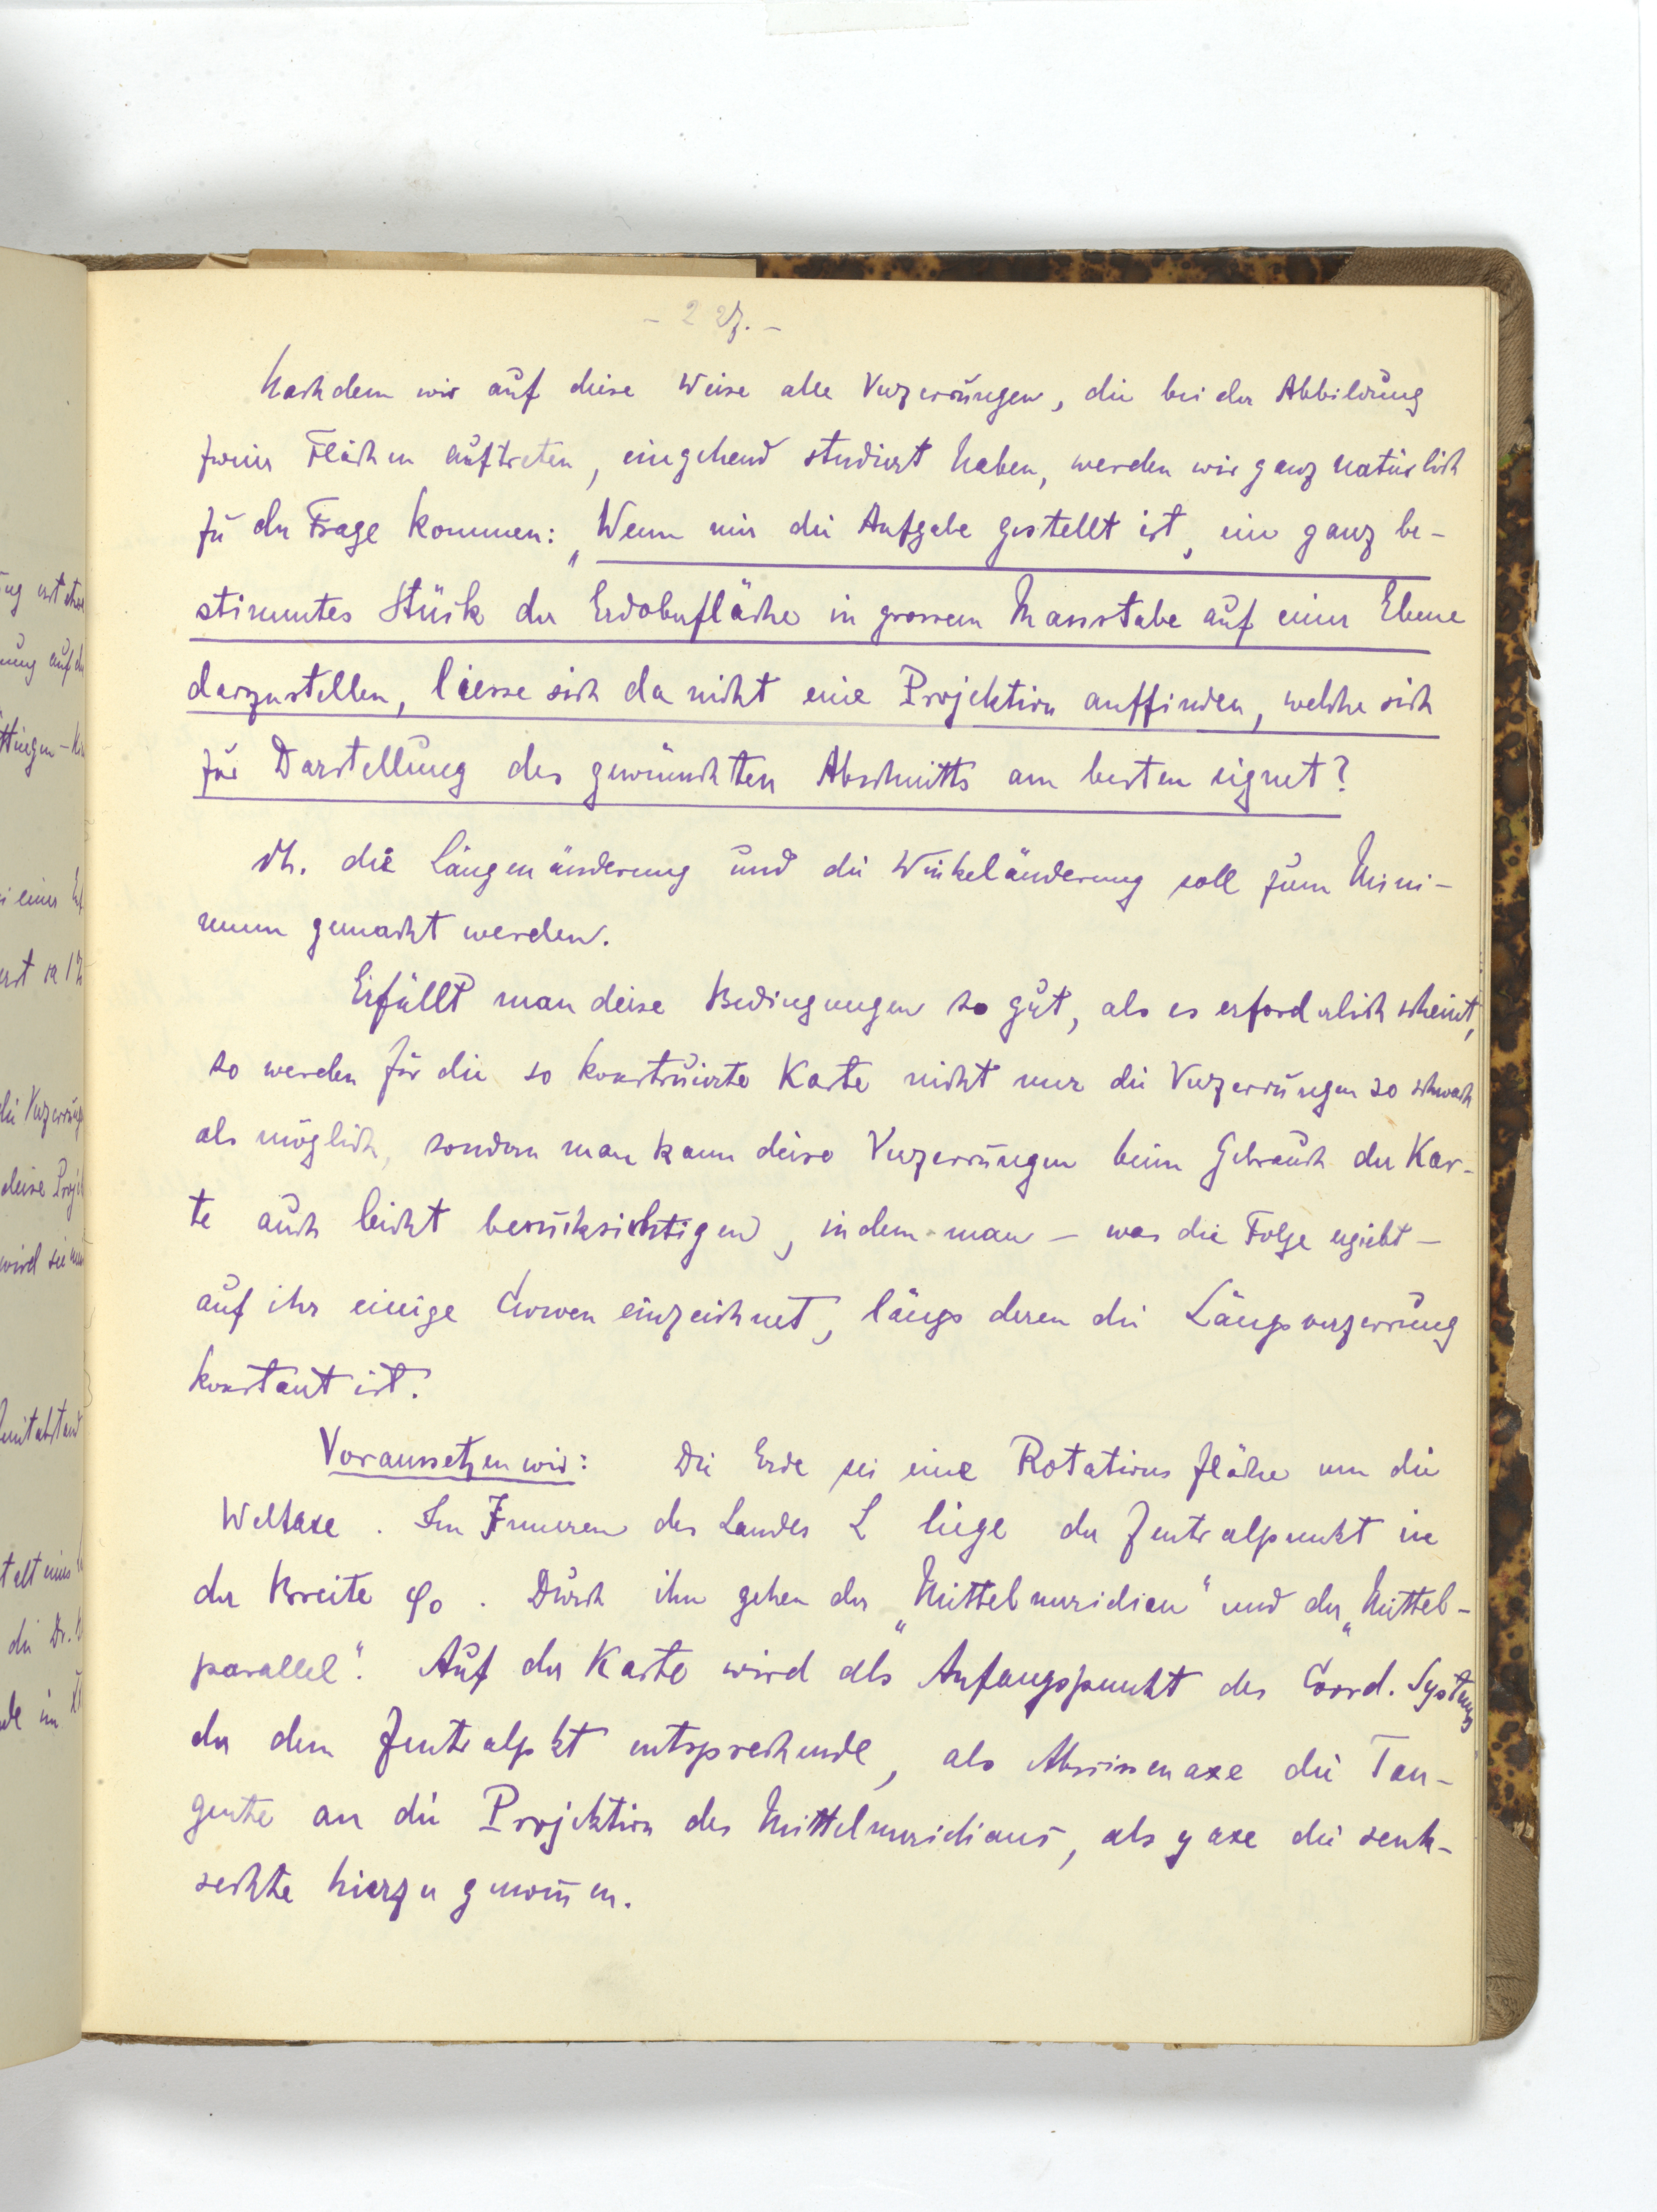 - 227. -
Nachdem wir auf diese Weise alle Verzerrungen, die bei der Abbildung
zweier Flächen auftreten, eingehend studiert haben, werden wir ganz natürlich
zu der Frage kommen: „Wenn mir die Aufgabe gestellt ist, ein ganz be-
stimmtes Stück der Erdoberfläche in grossem Massstabe auf einer Ebene
darzustellen, liesse sich da nicht eine Projektion auffinden, welche sich
zur Darstellung des gewünschten Abschnitts am besten eignet?
dh. die Längenänderung und die Winkeländerung soll zum Mini-
mum gemacht werden.
Erfüllt man diese Bedingungen so gut, als es erforderlich scheint,
so werden für die so konstruierte Karte nicht nur die Verzerrungen so schwach
als möglich, sondern man kann diese Verzerrungen beim Gebrauch der Kar-
te auch leicht berücksichtigen, indem man - was die Folge ergiebt -
auf ihr einige Curven einzeichnet, längs deren die Längsverzerrung
konstant ist.
Voraussetzen wir: Die Erde sei eine Rotationsfläche um die
Weltaxe. Im Inneren des Landes L liege der Zentralpunkt in
der Breite φ0. Durch ihn gehen der „Mittelmeridian“ und der „Mittel-
parallel“. Auf der Karte wird als Anfangspunkt des Coord. Systems
der dem Zentralpkt entsprechende, als Abscissenaxe die Tan-
gente an die Projektion des Mittelmeridians, als y axe die senk-
rechte hierzu genom̄en.
ung auf d
Göttingen-
i einer
die Verzerrung
diese Proj
wird sie